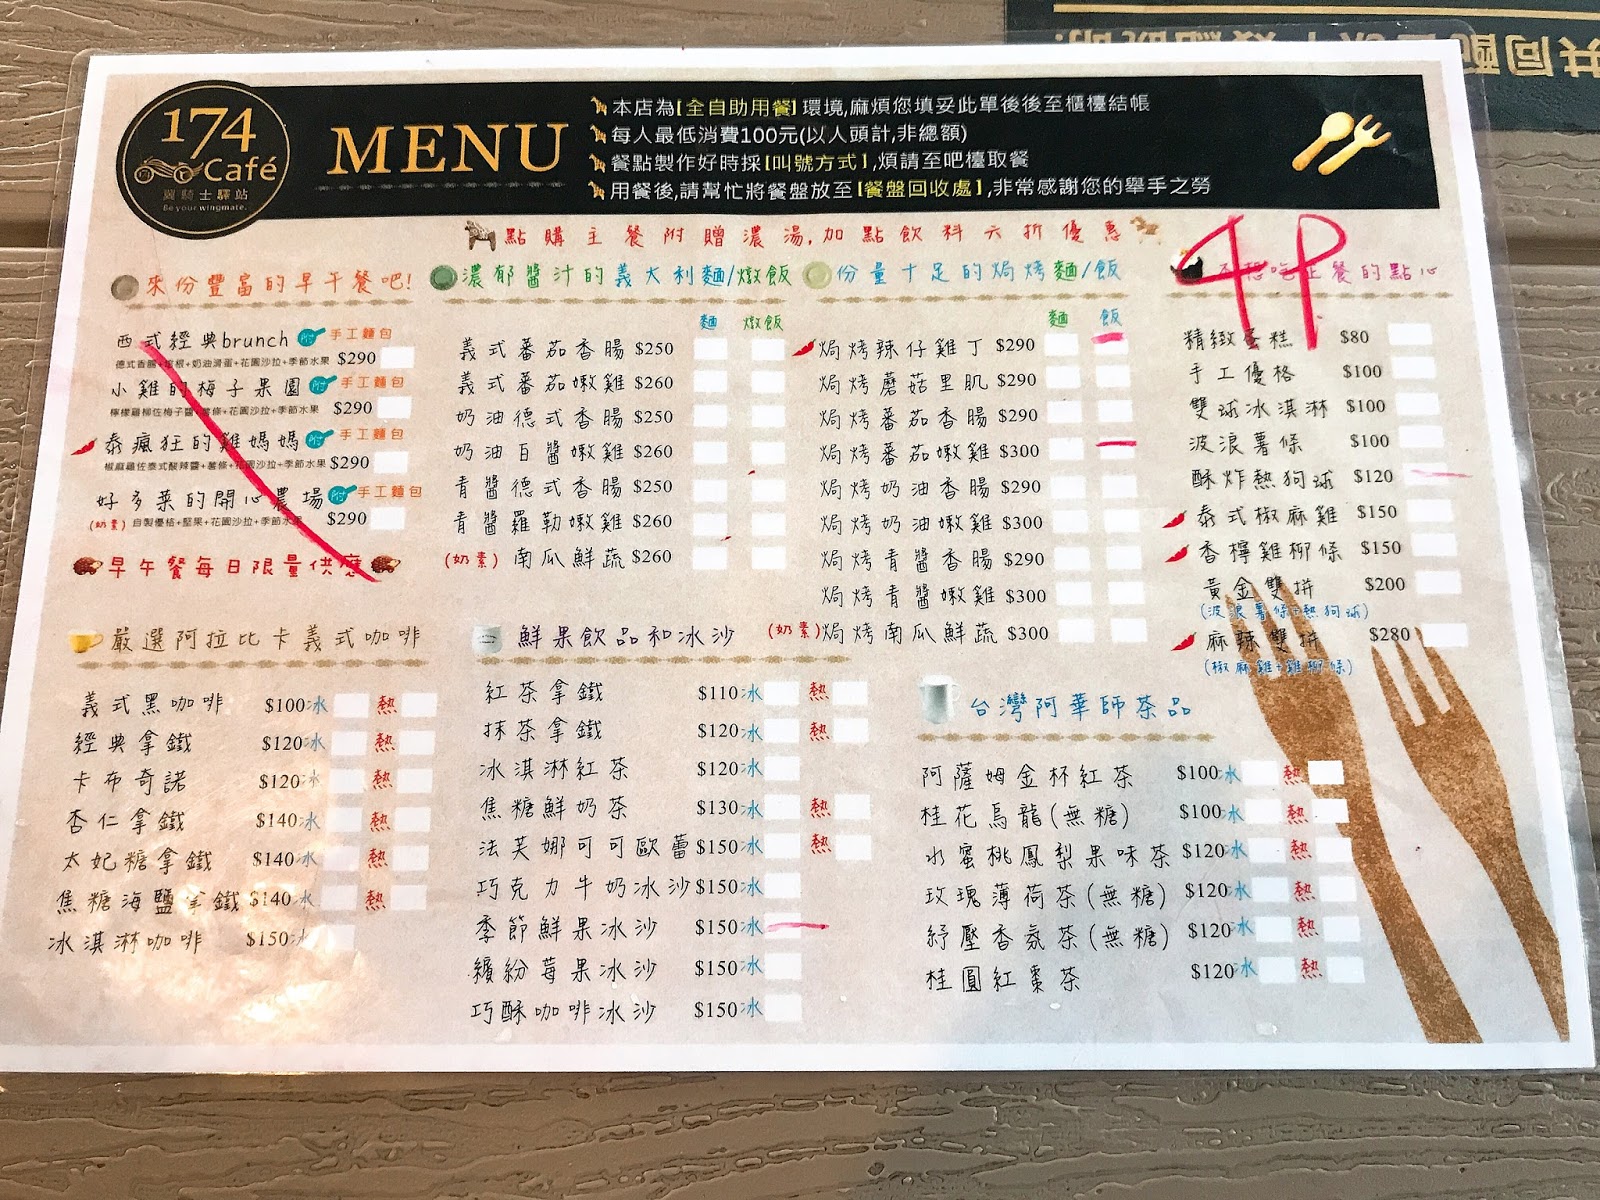 174
Café
翼騎士驛站
Be your wingmate.
MENU
本店為[全自助用餐]環境,麻煩您填妥此單後後至櫃檯結帳
每人最低消費100元(以人頭計,非總額)
餐點製作好時採[叫號方式],煩請至吧檯取餐
用餐後,請幫忙將餐盤放至[餐盤回收處],非常感謝您的舉手之勞
點購主餐附贈濃湯,加點飲料六折優惠
4P
來份豐富的早午餐吧!
西式經典brunch 附 手工麵包
德式香腸+培根+奶油滑蛋+花園沙拉+季節水果 $290
小雞的梅子果園 附 手工麵包
檸檬雞柳佐梅子醬+薯條+花園沙拉+季節水果 $290
泰瘋狂的雞媽媽 附 手工麵包
椒麻雞佐泰式酸辣醬+薯條+花園沙拉+季節水果 $290
好多菜的開心農場 附 手工麵包
(奶素) 自製優格+堅果+花園沙拉+季節水果 $290
早午餐每日限量供應
濃郁醬汁的義大利麵/燉飯
麵 燉飯
義式蕃茄香腸 $250
義式蕃茄嫩雞 $260
奶油德式香腸 $250
奶油白醬嫩雞 $260
青醬德式香腸 $250
青醬羅勒嫩雞 $260
(奶素) 南瓜鮮蔬 $260
份量十足的焗烤麵/飯
麵 飯
焗烤辣仔雞丁 $290
焗烤蘑菇里肌 $290
焗烤蕃茄香腸 $290
焗烤蕃茄嫩雞 $300
焗烤奶油香腸 $290
焗烤奶油嫩雞 $300
焗烤青醬香腸 $290
焗烤青醬嫩雞 $300
(奶素) 焗烤南瓜鮮蔬 $300
不想吃正餐的點心
精緻蛋糕 $80
手工優格 $100
雙球冰淇淋 $100
波浪薯條 $100
酥炸熱狗球 $120
泰式椒麻雞 $150
香檸雞柳條 $150
黃金雙拼 $200
(波浪薯條+熱狗球)
麻辣雙拼 $280
(椒麻雞+雞柳條)
嚴選阿拉比卡義式咖啡
義式黑咖啡 $100 冰 熱
經典拿鐵 $120 冰 熱
卡布奇諾 $120 冰 熱
杏仁拿鐵 $140 冰 熱
太妃糖拿鐵 $140 冰 熱
焦糖海鹽拿鐵 $140 冰 熱
冰淇淋咖啡 $150 冰
鮮果飲品和冰沙
紅茶拿鐵 $110 冰 熱
抹茶拿鐵 $120 冰 熱
冰淇淋紅茶 $120 冰
焦糖鮮奶茶 $130 冰 熱
法芙娜可可歐蕾 $150 冰 熱
巧克力牛奶冰沙 $150 冰
季節鮮果冰沙 $150 冰
繽紛莓果冰沙 $150 冰
巧酥咖啡冰沙 $150 冰
台灣阿華師茶品
阿薩姆金杯紅茶 $100 冰 熱
桂花烏龍(無糖) $100 冰 熱
水蜜桃鳳梨果味茶 $120 冰 熱
玫瑰薄荷茶(無糖) $120 冰 熱
紓壓香氛茶(無糖) $120 冰 熱
桂圓紅棗茶 $120 冰 熱